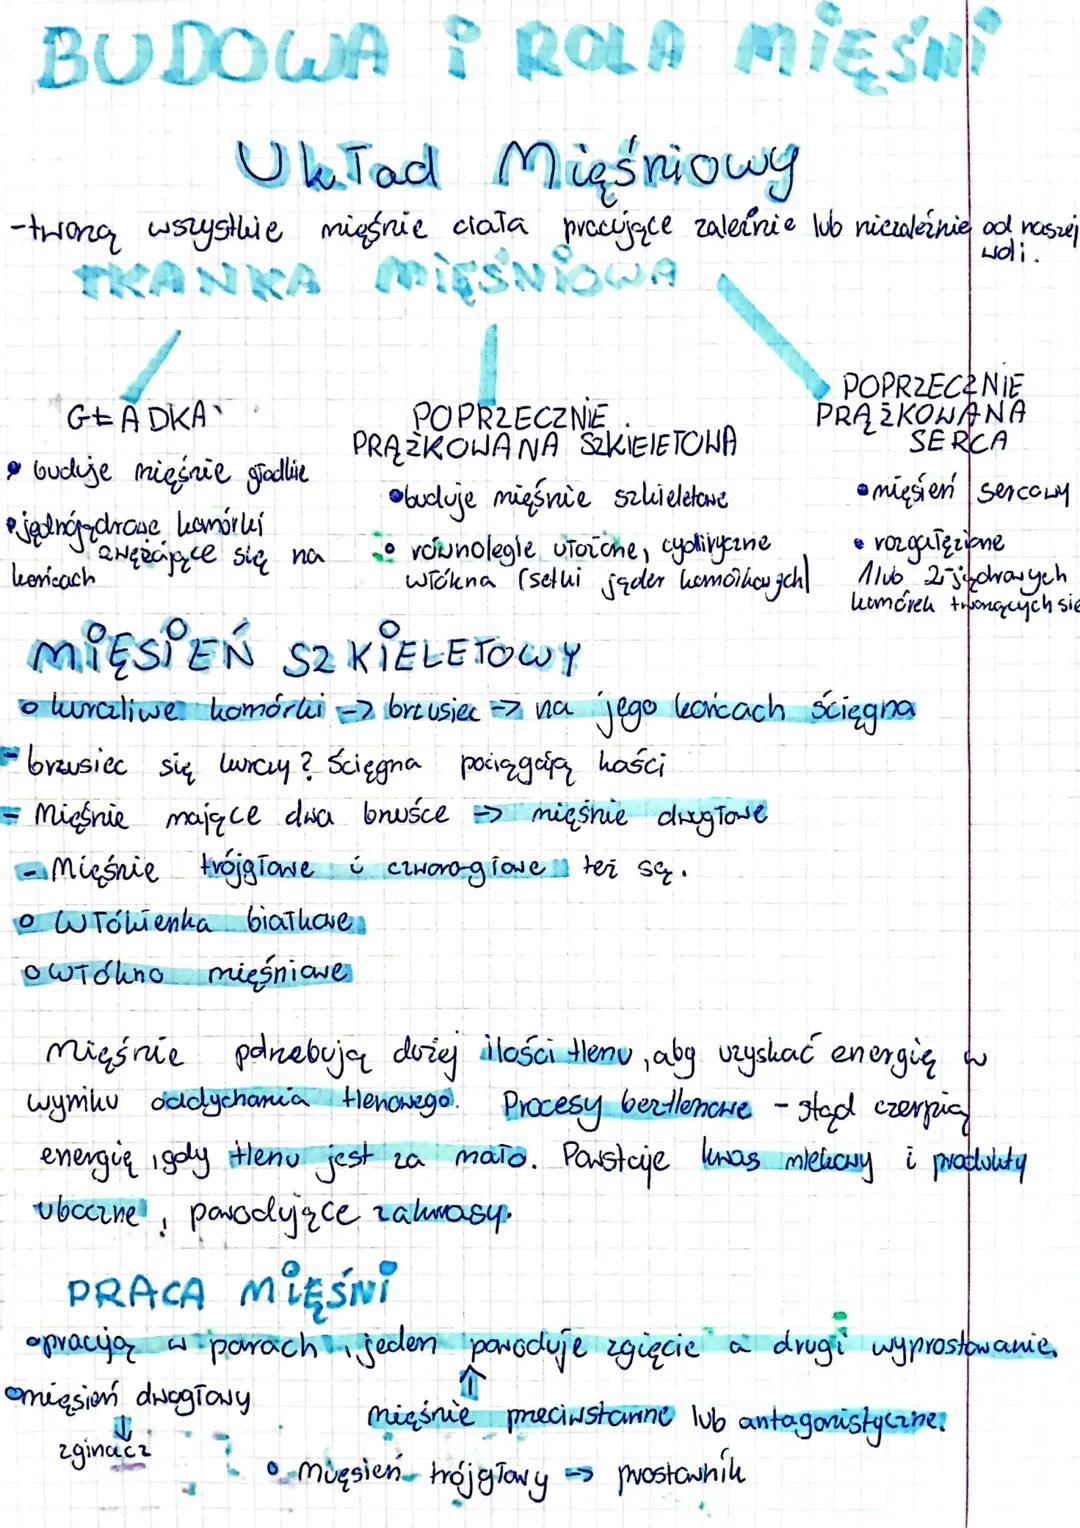 BUDOWA i ROLA MIĘŚNI
Układ Mięśniowy
-tworzą wszystkie mięśnie ciała pracujące zależnie lub niezależnie od naszej
woli.
TKANKA MIĘŚNIOWA
GŁADKA
• buduje mięśnie gładkie
• jednojądrowe komórki
zwężające się na
końcach
POPRZECZNIE
PRĄŻKOWANA SZKIELETOWA
• buduje mięśnie szkieletowe
• równolegle ułożone, cylindryczne
włókna (setki jąder komórkowych)
POPRZECZNIE
PRĄŻKOWANA
SERCA
• mięsień sercowy
• rozgałęzione
1 lub 2-jądrowych
komórek tworzących sie
MIĘSIEŃ SZKIELETOWY
o kurczliwe komórki -> brzusiec -> na jego końcach ścięgna
- brzusiec się kurczy? Ścięgna pociągają kości
- Mięśnie mające dwa brzuśce -> mięśnie dwugłowe
- Mięśnie trójgłowe i czworogłowe też są.
o Włókienka białkowe
o Włókno mięśniowe
Mięśnie potrzebują dużej ilości tlenu, aby uzyskać energię w
wyniku oddychania tlenowego. Procesy beztlenowe - stąd czerpią
energię, gdy tlenu jest za mało. Powstaje kwas mlekowy i produkty
uboczne, powodujące zakwasy.
PRACA MIĘŚNI
• pracują w parach, jeden powoduje zgięcie a drugi wyprostowanie.
• mięsień dwugłowy
mięśnie przeciwstawne lub antagonistyczne.
zginacz
• Mięsień trójgłowy -> prostownik